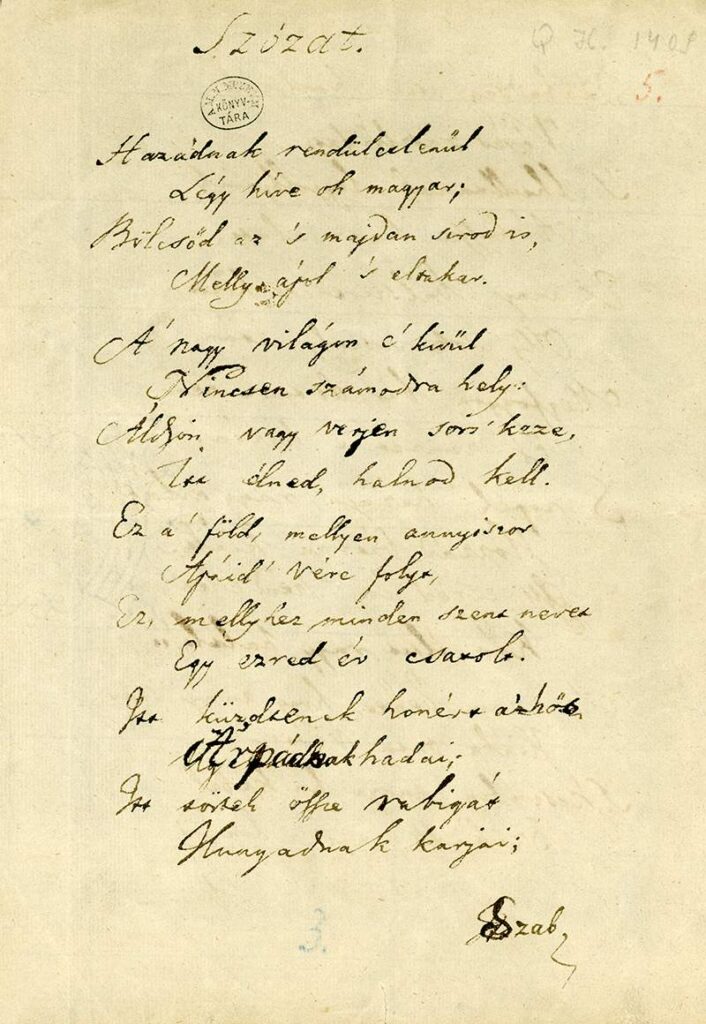 Szózat.
Q H. 1408
5.
A M. N. MUZEUM
KÖNYV-
TÁRA
Hazádnak rendületlenül
Légy híve oh magyar;
Bölcsőd az 's majdan sírod is,
Melly ápol 's eltakar.
A' nagy világon e' kivül
Nincsen számodra hely:
Áldjon vagy verjen sors' keze,
Itt élned, halnod kell.
Ez a' föld, mellyen annyiszor
Apáid' vére folyt,
Ez, mellyhez minden szent nevet
Egy ezred év csatolt.
Itt küzdtenek honért a' hős
Árpádnak hadai;
Itt törtek össze rabigát
Hunyadnak karjai;
Szab